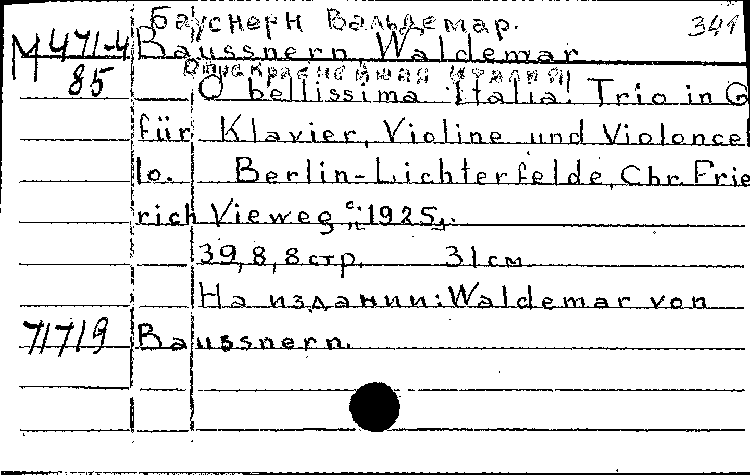 Бауснерн Вальдемар. 341
М 471-4 Baussnern, Waldemar
85 О прекраснейшая Италия!
O bellissima Italia! Trio in G
für Klavier, Violine und Violoncel
lo. Berlin-Lichterfelde, Chr. Frie
rich Vieweg, c. 1925,
39, 8, 8 стр. 31 см
На издании: Waldemar von
71719 Baussnern.